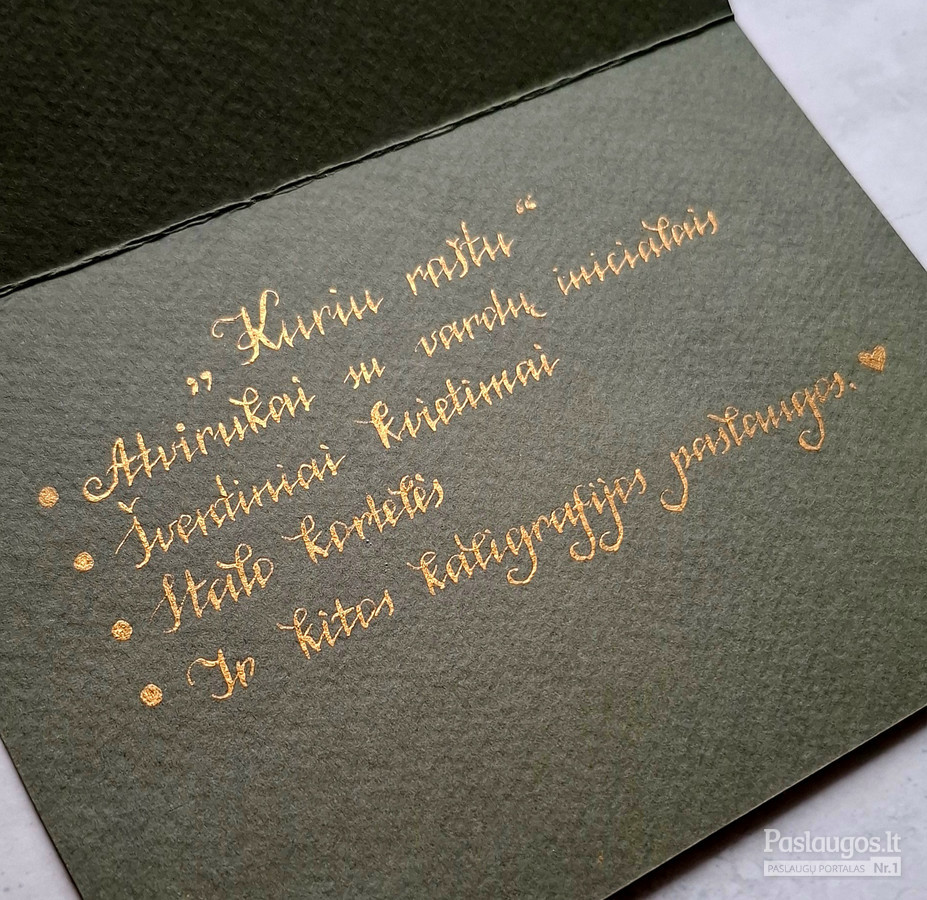 „Kuriu raštu“
• Atvirukai su vardų inicialais
• Šventiniai kvietimai
• Stalo kortelės
• Ir kitos kaligrafijos paslaugos. ♥
Paslaugos.lt
PASLAUGŲ PORTALAS Nr.1